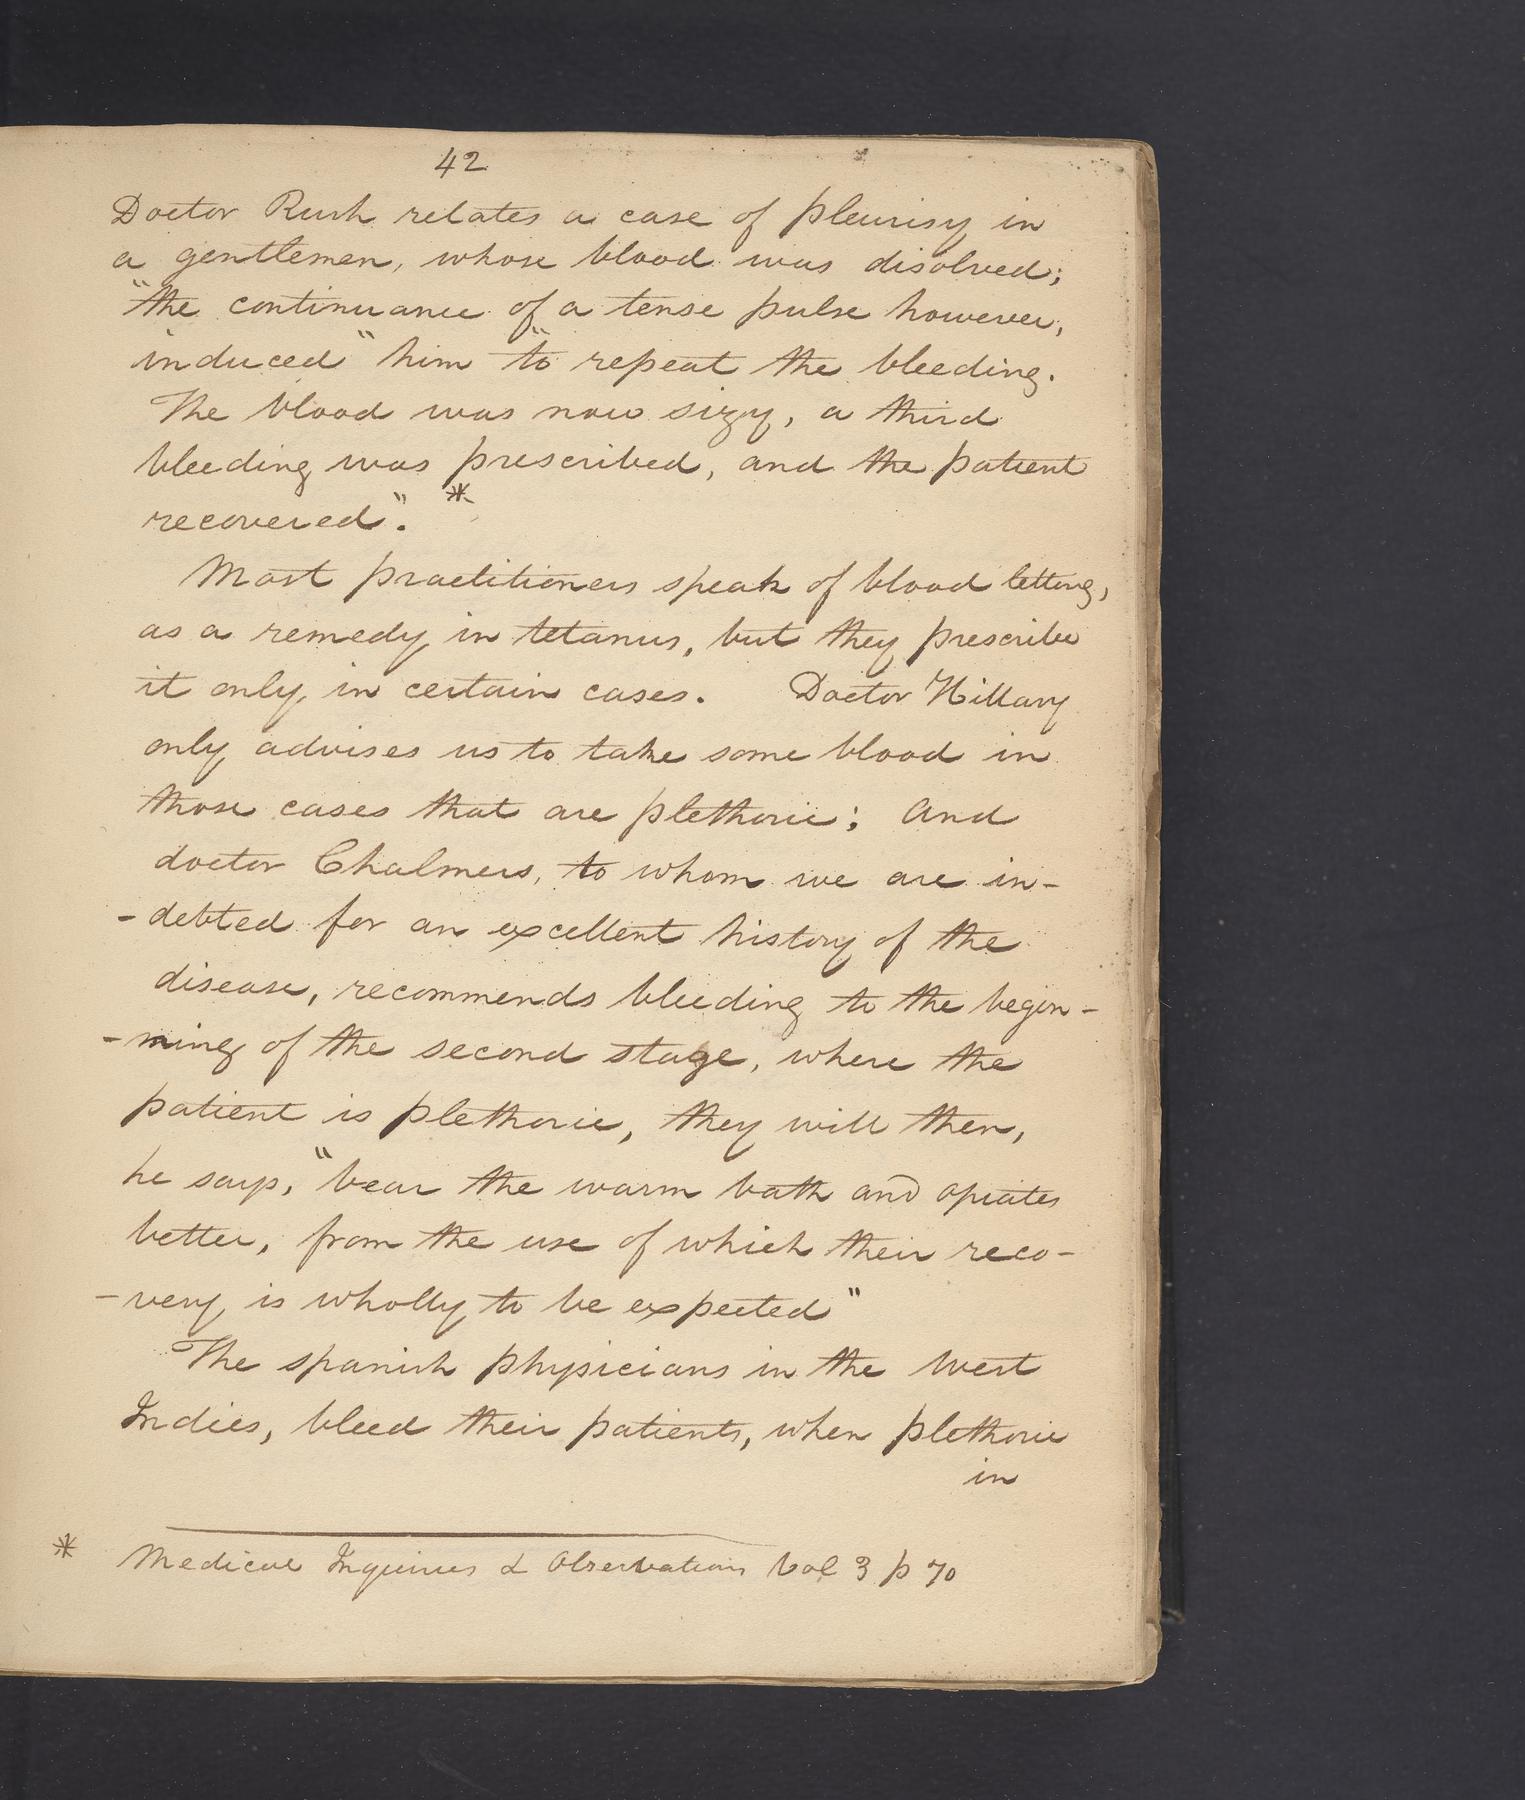 42
Doctor Rush relates a case of pleurisy in
a gentlemen, whose blood was disolved;
"the continuance of a tense pulse however,
induced" him "to repeat the bleeding.
The blood was now sizy, a third
bleeding was prescribed, and the patient
recovered". *
Most practitioners speak of blood letting,
as a remedy in tetanus, but they prescribe
it only in certain cases. Doctor Hillary
only advises us to take some blood in
those cases that are plethoric; and
doctor Chalmers, to whom we are in-
-debted for an excellent history of the
disease, recommends bleeding to the begin-
-ning of the second stage, where the
patient is plethoric, they will then,
he says, "bear the warm bath and opiates
better, from the use of which their reco-
-very is wholly to be expected"
The spanish physicians in the West
Indies, bleed their patients, when plethoric
in
* Medical Inquiries & Observations Vol 3 p 70